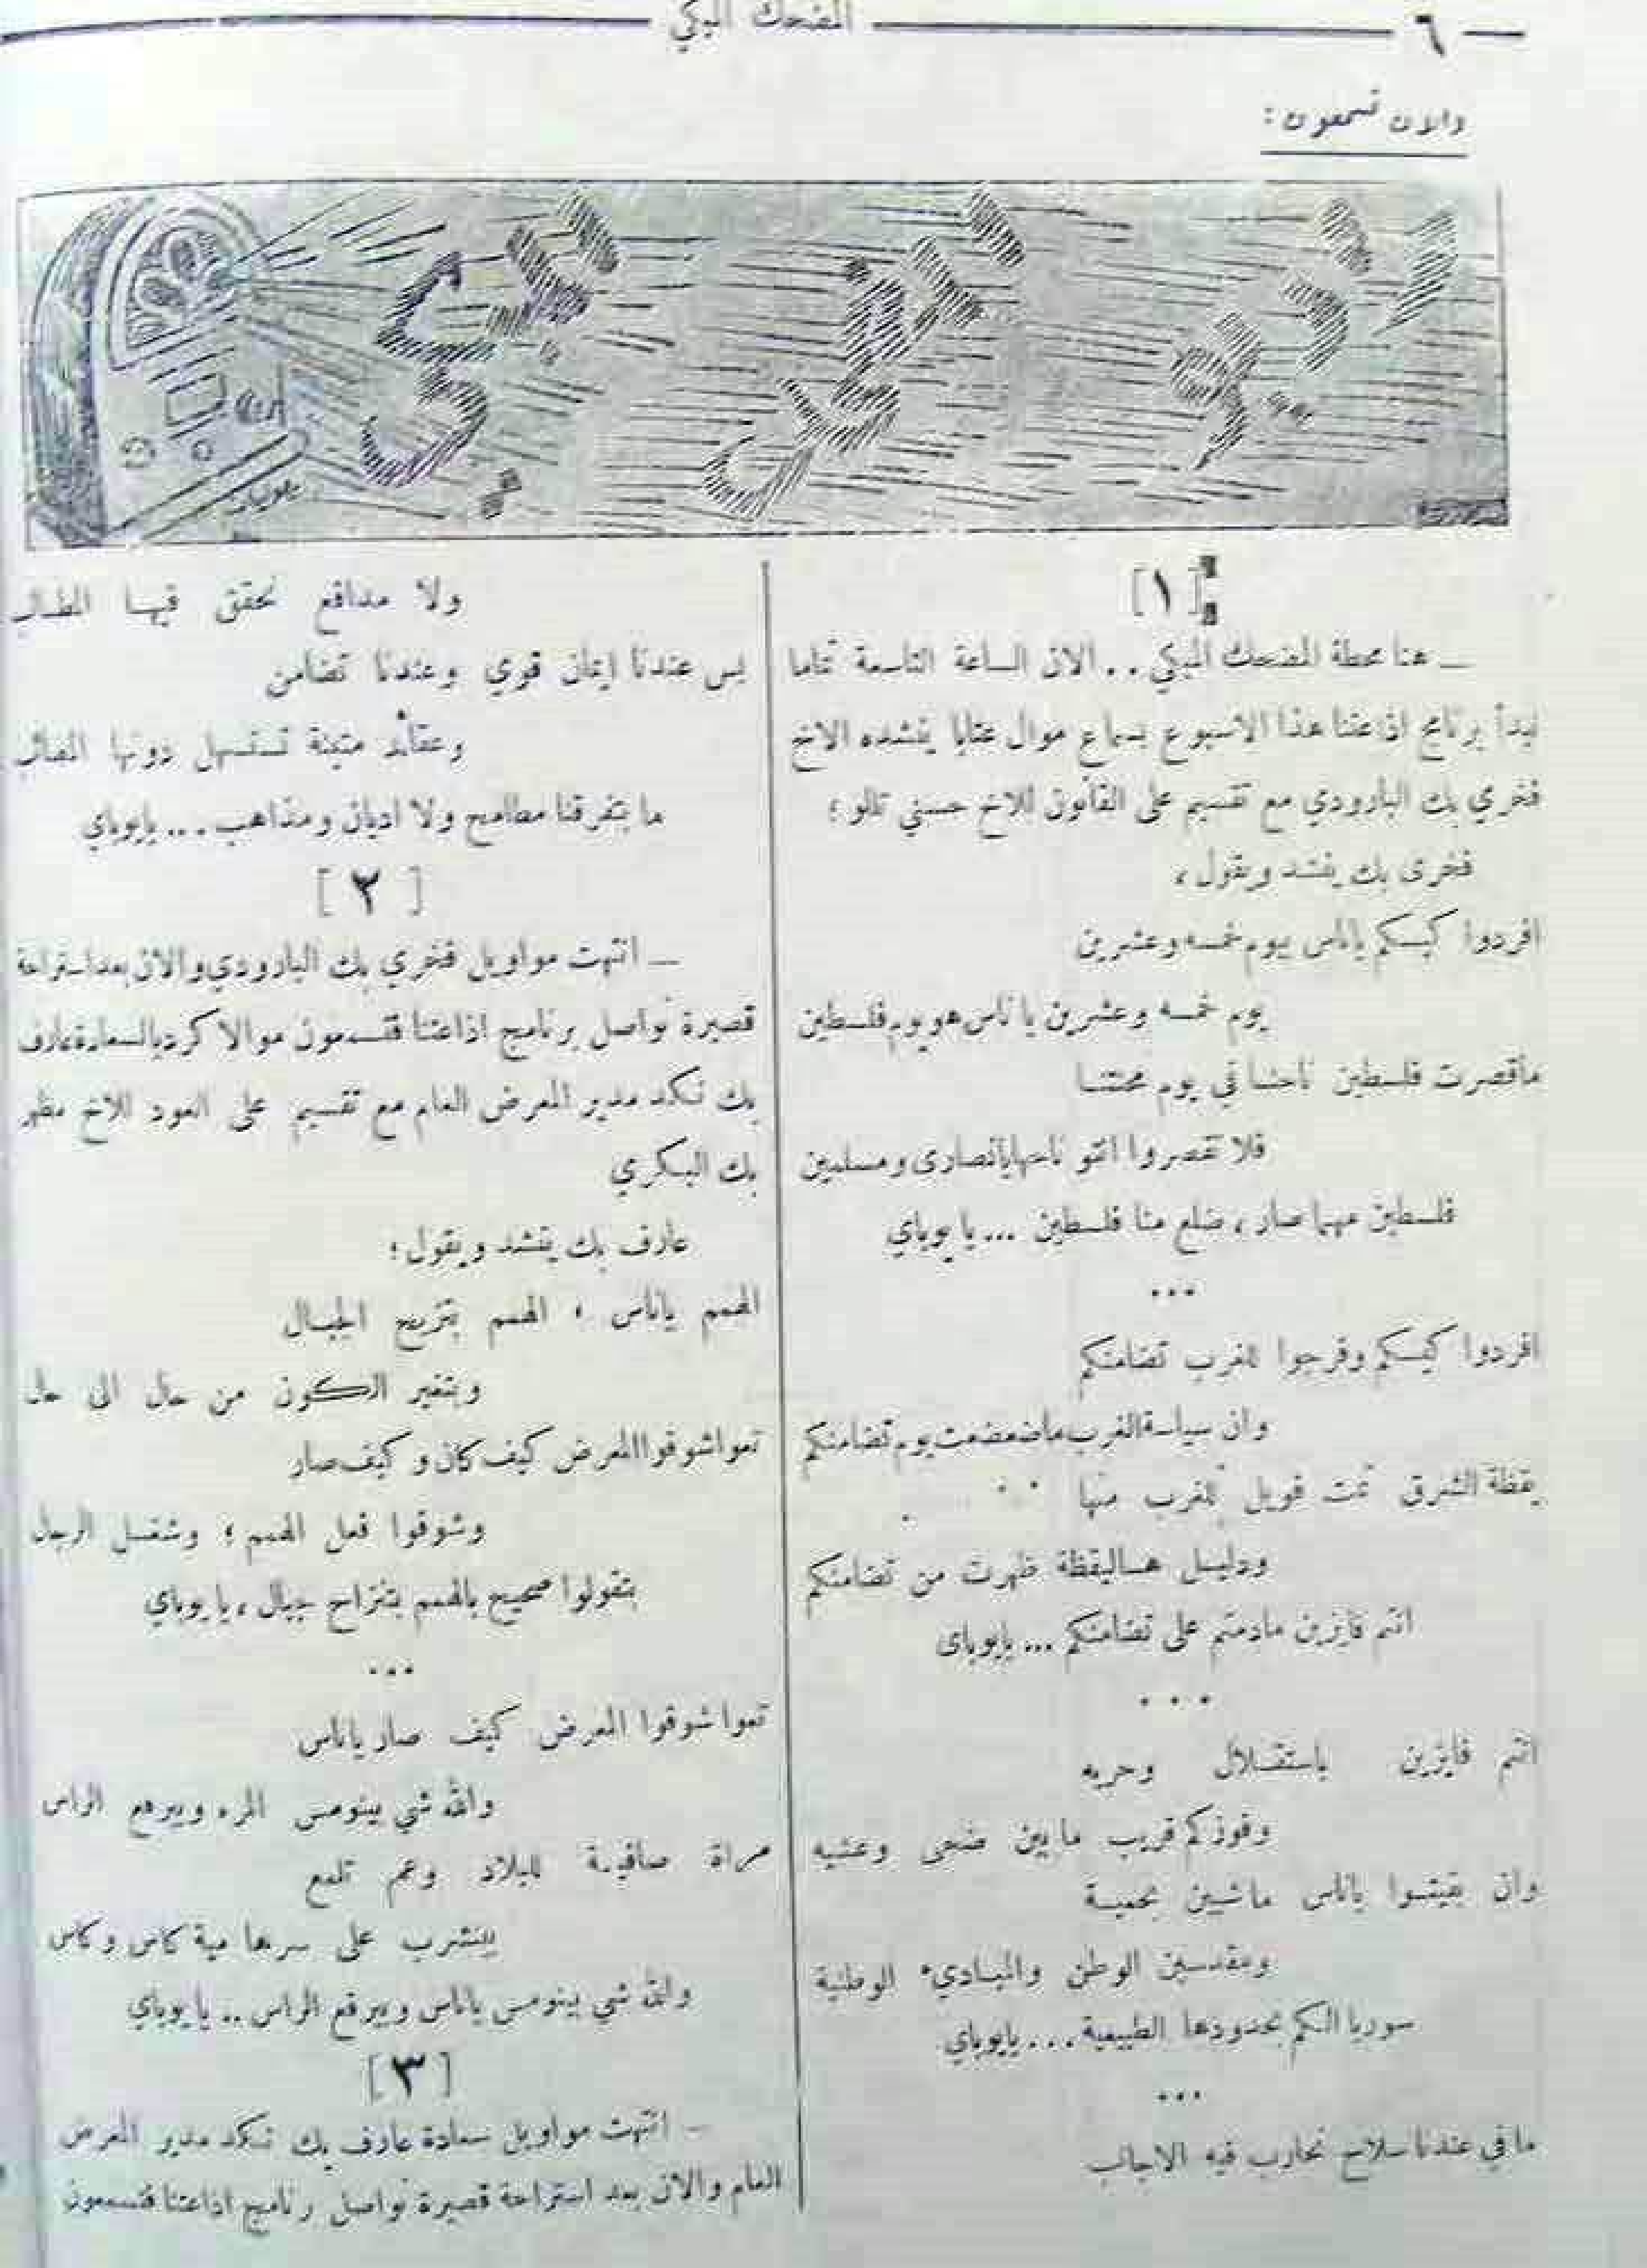 ٦
المضحك المبكي
والآن تسمعون :
راديو المضحك المبكي
[١]
— هنا محطة المضحك المبكي . . الآن الساعة التاسعة تماما
نبدأ برنامج اذاعتنا هذا الاسبوع بسماع موال عتابا ينشده الاخ
فخري بك البارودي مع تقسيم على القانون للاخ حسني تللو ؛
فخري بك ينشد ويقول ،
افردوا كيسكم ياناس بيوم خمسه وعشرين
يوم خمسه وعشرين يا ناس هو يوم فلسطين
ماقصرت فلسطين ناحنا في يوم محنتنا
فلا تقصروا انتو ناحها يانصارى ومسلمين
فلسطين مهما صار ، ضلع منا فلسطين ... يا يوباي
...
افردوا كيسكم وفرجوا للغرب تضامنكم
وان سياسة الغرب ماضعضعت يوم تضامنكم
يقظة الشرق تمت فويل للغرب منها
ودليل هاليقظة ظهرت من تضامنكم
انتم فايزين مادمتم على تضامنكم ... يايوباي
...
انتم فايزين باستقلال وحريه
وفوزكم قريب مابين ضحى وعشيه
وان بقيتوا ياناس ماشيين بحمية
ومقدسين الوطن والمبادىء الوطنية
سوريا الكم بحدودها الطبيعية . . . يايوباي
...
ما في عندنا سلاح نحارب فيه الاجانب
ولا مدافع نحقق فيها
بس عندنا إيمان قوي وعندنا تضامن
وعقائد متينة تستسهل دونها
ما بتفرقنا مطامح ولا اديان ومذاهب ... يايوباي
[ ٢ ]
— انتهت مواويل فخري بك البارودي والآن بعد استراحة
قصيرة نواصل برنامج اذاعتنا فتسمعون موالا كرديا لسعادة عارف
بك نكد مدير المعرض العام مع تقسيم على العود للاخ مظهر
بك البكري
عارف بك ينشد ويقول ؛
الهمم ياناس ؛ الهمم بتزيح الجبال
وبتغير الكون من حال الى حال
تعوا شوفوا المعرض كيف كان وكيف صار
وشوفوا فعل الهمم ؛ وشغل الرجال
بتقولوا صحيح بالهمم بتنزاح جبال ، يا يوباي
...
تعوا شوفوا المعرض كيف صار ياناس
والله شي بينومس المرء وبيرفع الراس
مراة صافية للبلاد وعم تلمع
بينشرب على سرها مية كاس وكاس
والله شي بينومس ياناس وبيرفع الراس .. يا يوباي
[٣]
— انتهت مواويل سعادة عارف بك نكد مدير المعرض
العام والآن بعد استراحة قصيرة نواصل برنامج اذاعتنا فتسمعون